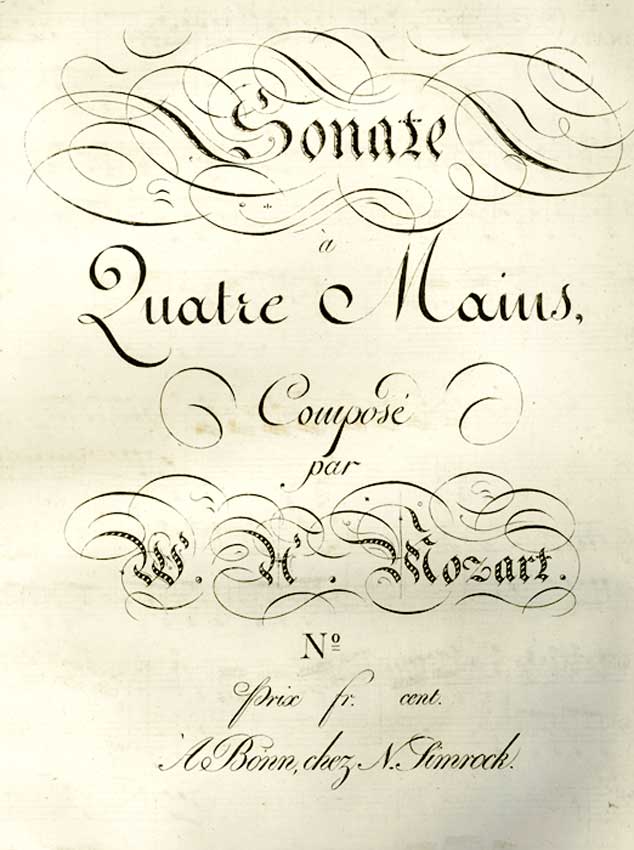 Sonate
à
Quatre Mains,
Composé
par
W. A. Mozart.
Nº
Prix fr. cent.
A Bonn, chez N. Simrock.